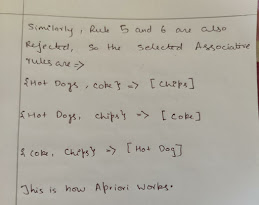 Similarly, Rule 5 and 6 are also
Rejected, So the selected Associative
rules are =>
{Hot Dogs, coke} => [Chips]
{Hot Dogs, chips} => [Coke]
{Coke, Chips} => [Hot Dog]
This is how Apriori works.